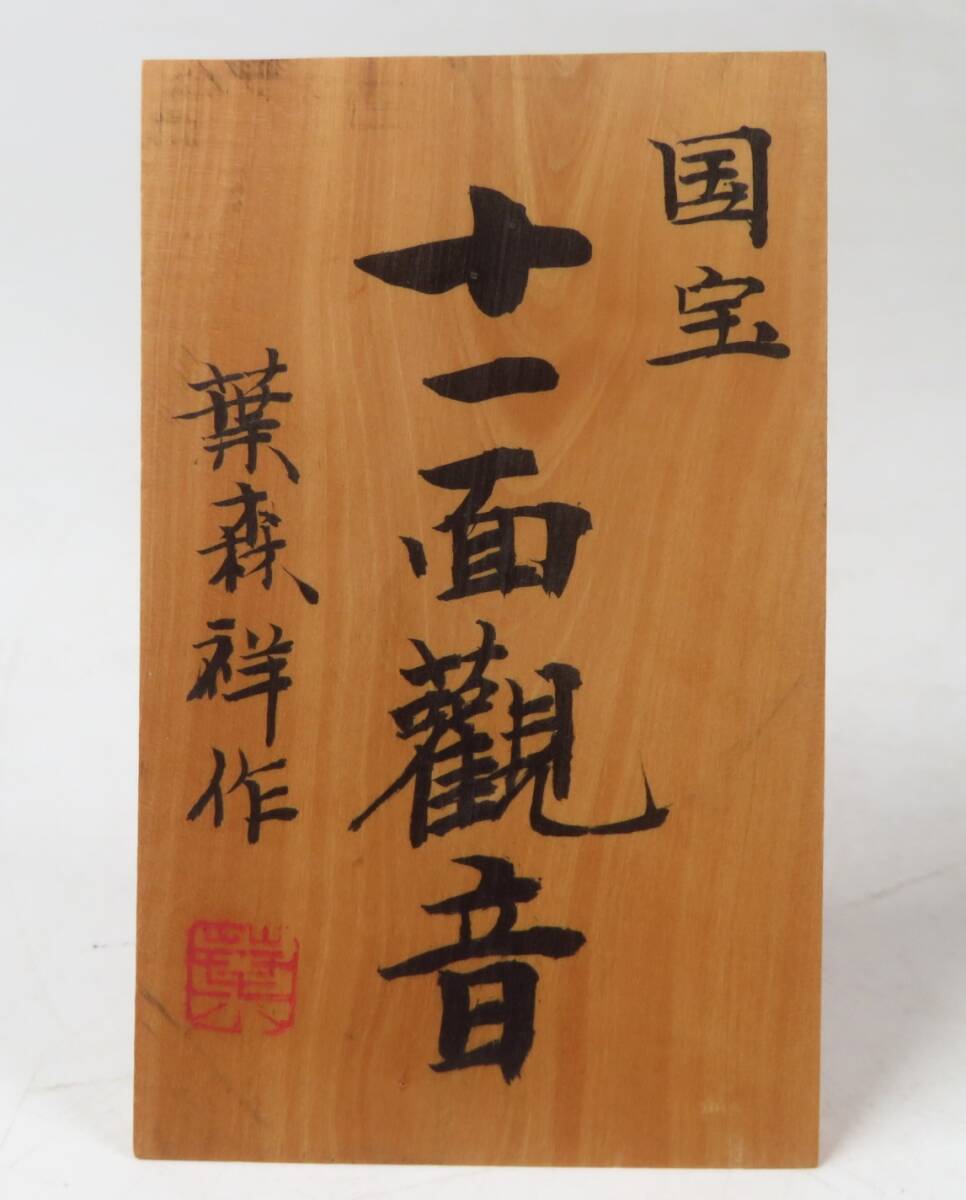 国宝
十一面觀音
葉森祥作